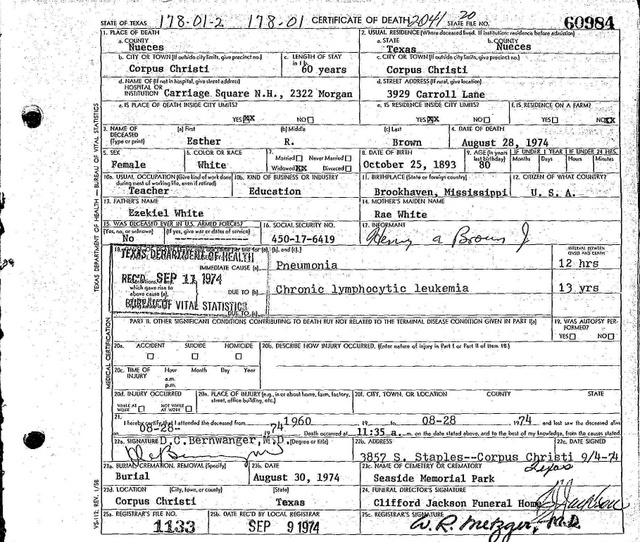 STATE OF TEXAS 178-01-2 178.01 CERTIFICATE OF DEATH 2041 20 STATE FILE NO. 60984
1. PLACE OF DEATH 2. USUAL RESIDENCE (Where deceased lived. If institution: residence before admission)
a. COUNTY Nueces a. STATE Texas b. COUNTY Nueces
b. CITY OR TOWN (If outside city limits, give precinct no.) c. LENGTH OF STAY in 1b c. CITY OR TOWN (If outside city limits, give precinct no.)
Corpus Christi 60 years Corpus Christi
d. NAME OF (If not in hospital, give street address) d. STREET ADDRESS (If rural, give location)
HOSPITAL OR INSTITUTION Carriage Square N.H., 2322 Morgan 3929 Carroll Lane
e. IS PLACE OF DEATH INSIDE CITY LIMITS? e. IS RESIDENCE INSIDE CITY LIMITS? f. IS RESIDENCE ON A FARM?
YES XX NO YES XX NO YES NO XX
3. NAME OF DECEASED (Type or print) (a) First (b) Middle (c) Last 4. DATE OF DEATH
Esther R. Brown August 28, 1974
5. SEX 6. COLOR OR RACE 7. Married Never Married 8. DATE OF BIRTH 9. AGE (In years last birthday) IF UNDER 1 YEAR IF UNDER 24 HRS.
Months Days Hours Minutes
Female White Widowed XX Divorced October 25, 1893 80
10a. USUAL OCCUPATION (Give kind of work done during most of working life, even if retired) 10b. KIND OF BUSINESS OR INDUSTRY 11. BIRTHPLACE (State or foreign country) 12. CITIZEN OF WHAT COUNTRY?
Teacher Education Brookhaven, Mississippi U. S. A.
13. FATHER'S NAME 14. MOTHER'S MAIDEN NAME
Ezekiel White Rae White
15. WAS DECEASED EVER IN U.S. ARMED FORCES? 16. SOCIAL SECURITY NO. 17. INFORMANT
(Yes, no, or unknown) (If yes, give war or dates of service)
No -------------- 450-17-6419 Henry A Brown Jr
TEXAS DEPARTMENT OF HEALTH
INTERVAL BETWEEN ONSET AND DEATH
IMMEDIATE CAUSE (a) Pneumonia 12 hrs
REC'D SEP 11 1974
DUE TO (b) Chronic lymphocytic leukemia 13 yrs
BUREAU OF VITAL STATISTICS
DUE TO (c)
PART II. OTHER SIGNIFICANT CONDITIONS CONTRIBUTING TO DEATH BUT NOT RELATED TO THE TERMINAL DISEASE CONDITION GIVEN IN PART I(a) 19. WAS AUTOPSY PERFORMED?
YES NO
20a. ACCIDENT SUICIDE HOMICIDE 20b. DESCRIBE HOW INJURY OCCURRED. (Enter nature of injury in Part I or Part II of item 18.)
20c. TIME OF INJURY Hour Month Day Year
a.m.
p.m.
20d. INJURY OCCURRED 20e. PLACE OF INJURY (e.g., in or about home, farm, factory, street, office building, etc.) 20f. CITY, TOWN, OR LOCATION COUNTY STATE
WHILE AT WORK NOT WHILE AT WORK
21. I hereby certify that I attended the deceased from 1960 to 08-28 1974 and last saw the deceased alive
08-28- 1974 Death occurred at 11:35 a. m. on the date stated above, and to the best of my knowledge, from the causes stated.
22a. SIGNATURE D.C. Bernwanger, M.D. (Degree or title) 22b. ADDRESS 22c. DATE SIGNED
3857 S. Staples--Corpus Christi 9/4-74
Texas
23a. BURIAL, CREMATION, REMOVAL (Specify) 23b. DATE 23c. NAME OF CEMETERY OR CREMATORY
Burial August 30, 1974 Seaside Memorial Park
23d. LOCATION (City, town, or county) (State) 24. FUNERAL DIRECTOR'S SIGNATURE
Corpus Christi Texas Clifford Jackson Funeral Home
25a. REGISTRAR'S FILE NO. 25b. DATE REC'D BY LOCAL REGISTRAR 25c. REGISTRAR'S SIGNATURE
1133 SEP 9 1974 W. R. Metzger, M.D.
TEXAS DEPARTMENT OF HEALTH — BUREAU OF VITAL STATISTICS
MEDICAL CERTIFICATION
VS-112 REV. 1/58